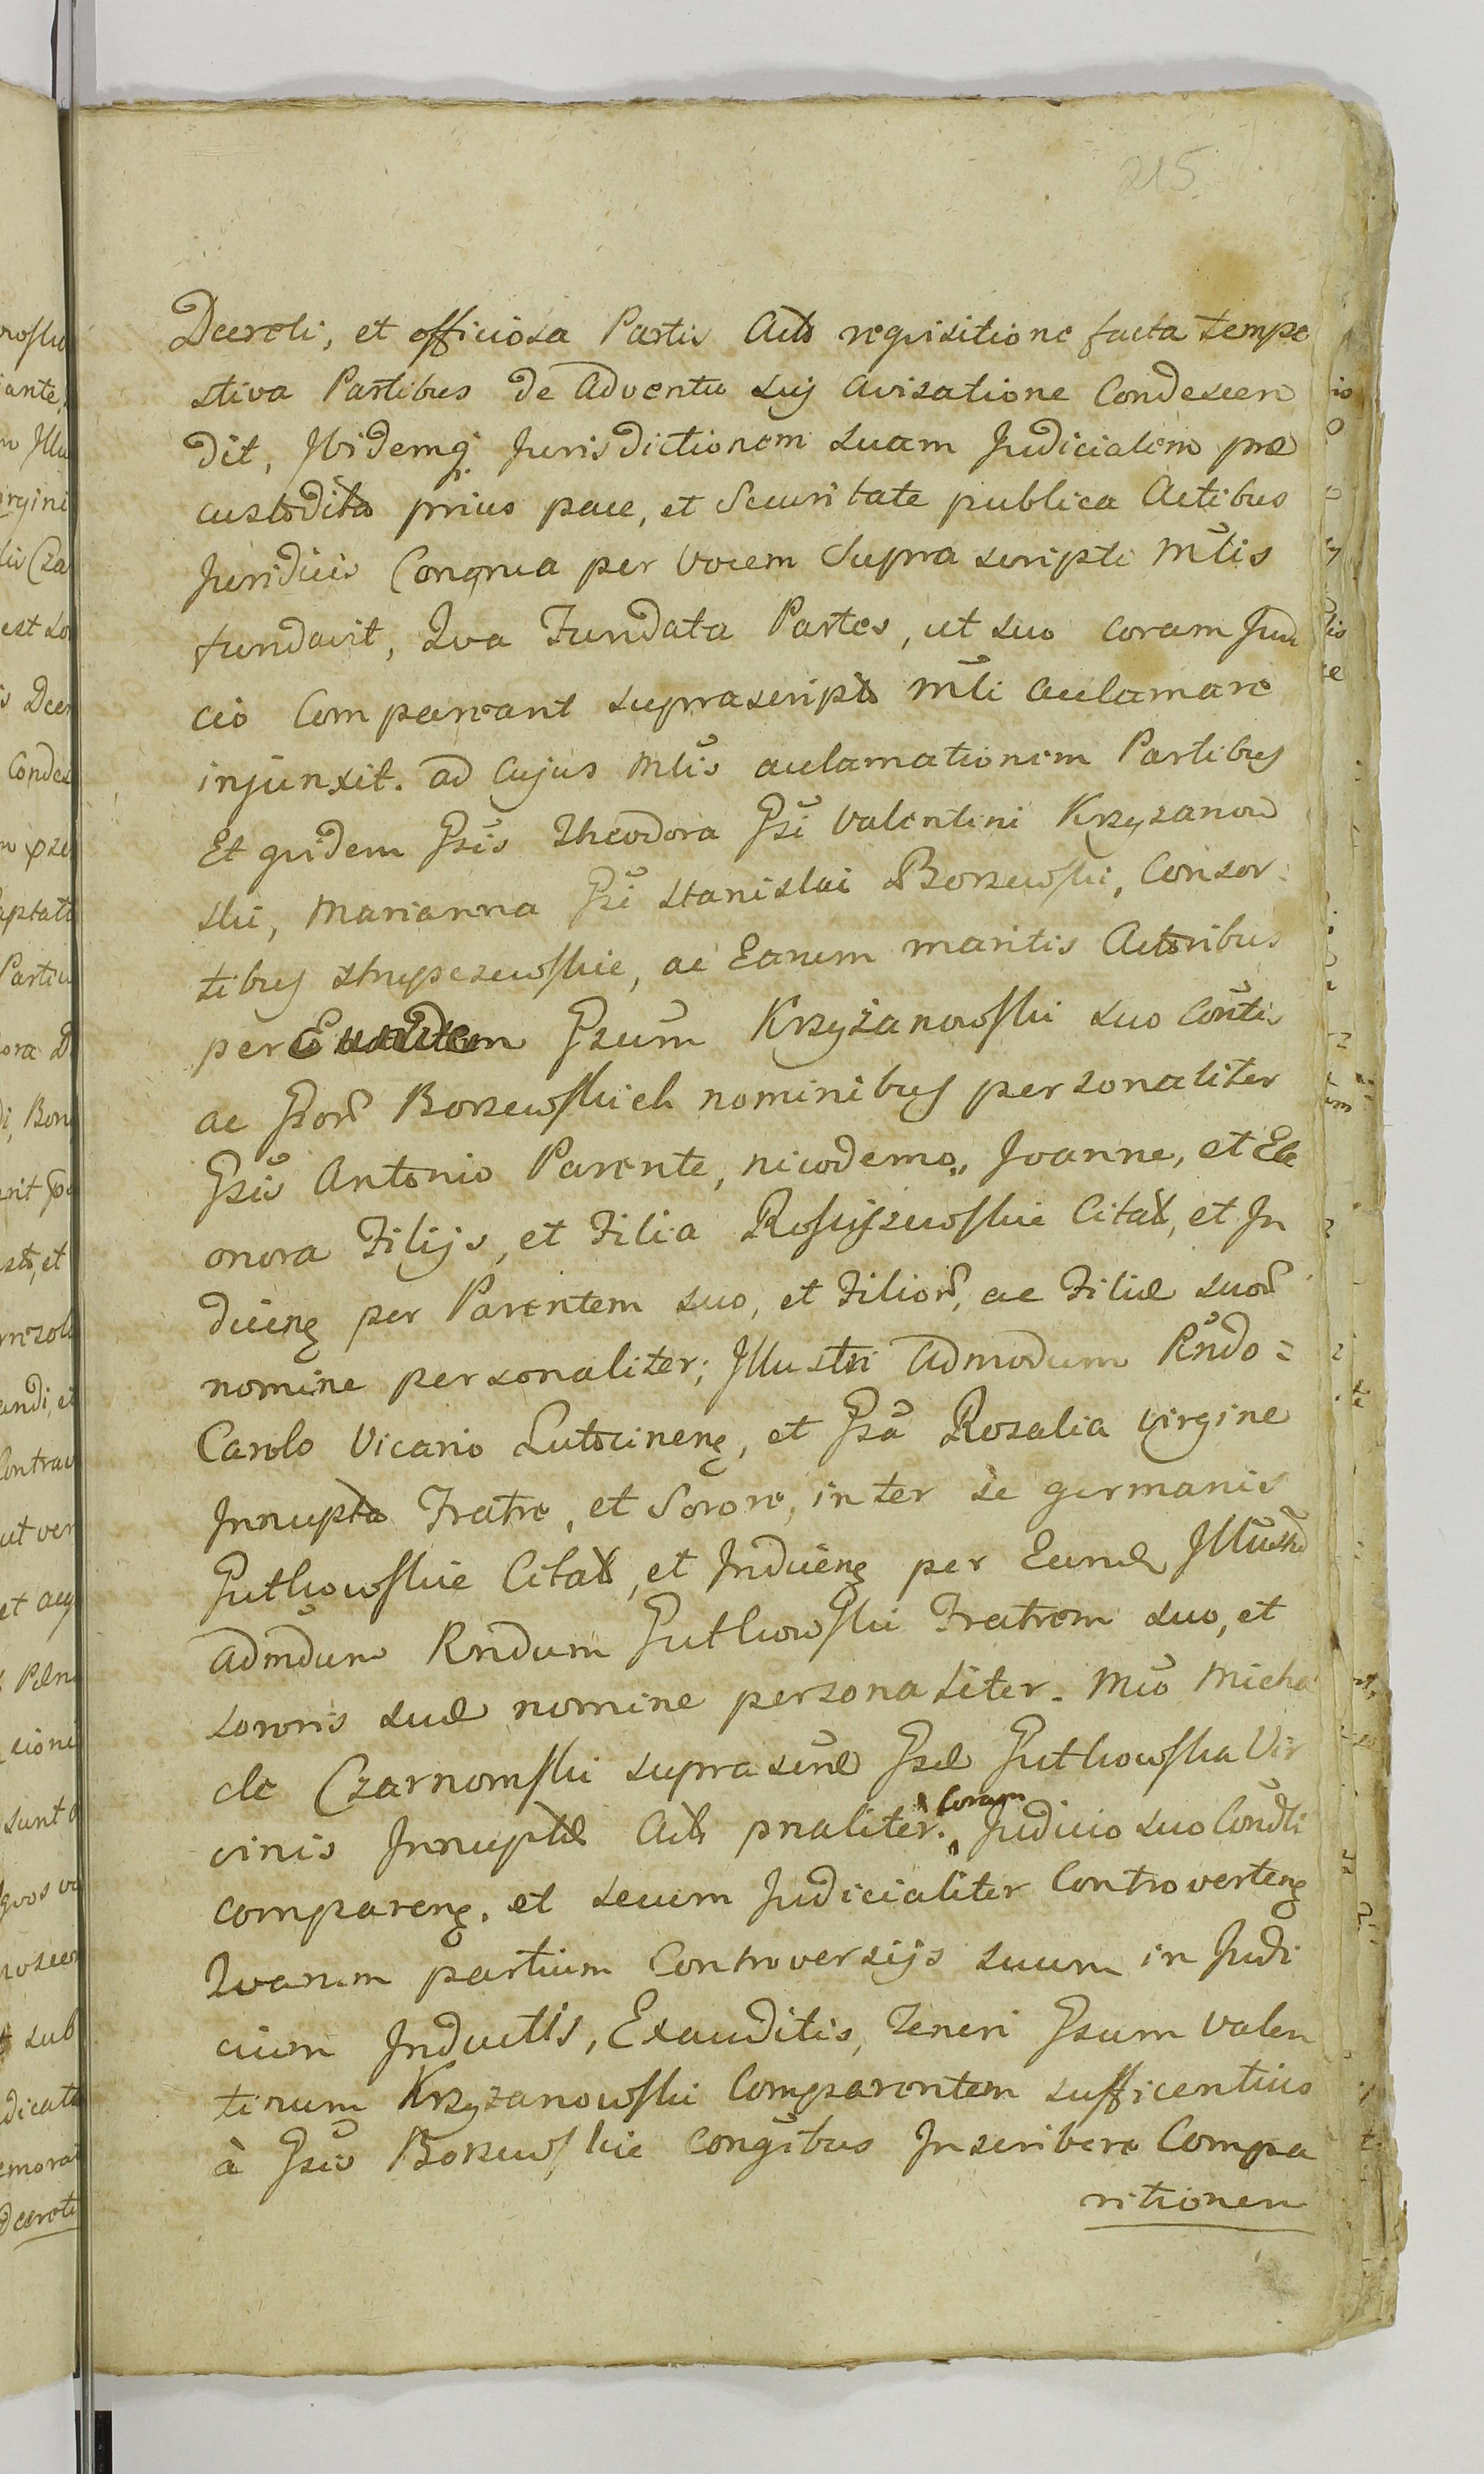 215
Decreti, et officiosa Partis Acto requisitione facta tempe
stiva Partibus de Adventu suij Avisatione Condescen
dit, Ibidemq Jurisdictionem suam Judicialem præ
custodita prius pace, et Securitate publica Actibus
Juridicis Congrua per vocem Supra scripti Mtlis
fundavit, Qva Fundata Partes, ut suo coram Judi
cio Compareant suprascripto Mtli acclamare
injunxit. ad Cujus Mtlis acclamationem Partibus
Et quidem Gsis Theodora Gsi Valentini Krzyzanow
ski, Marianna Gsi Stanislai Borzewski, Consor
tibus Skrzypczewskie, ac Earum maritis Actoribus
per Eundem Gsum Krzyżanowski suo Contis
ac Gsor Borzewskich nominibus personaliter
Gsis Antonio Parente, nicodemo, Joanne, et Ele
onora Filijs, et Filia Rościszewskie Citat, et In
ducing per Parentem suo, et Filior, ac Filiæ suor
nomine personaliter; Illustri Admodum Rndo
Carolo Vicario Lutocineng, et Gsa Rozalia Virgine
Innupta Fratre, et Sorore, inter se germanis
Gutkowskie Citat, et Inducing per Eund Illustr
admdum Rndum Gutkowski Fratrem suo, et
sororis suæ nomine personaliter. Mio Micha
ele Czarnomski suprascne Gsæ Gutkowska Vir
ginis Innuptæ Acto pnaliter. coram Judicio suo Condli
compareng. et secum Judicialiter Controverteng
Qvarum partium Controversijs suum in Judi
cium Inductis, Exauditis, Teneri Gsum Valen
tinum Krzyzanowski Comparentem sufficentius
à Gsis Borzewskie congibus Inscribere Compa
ritionem